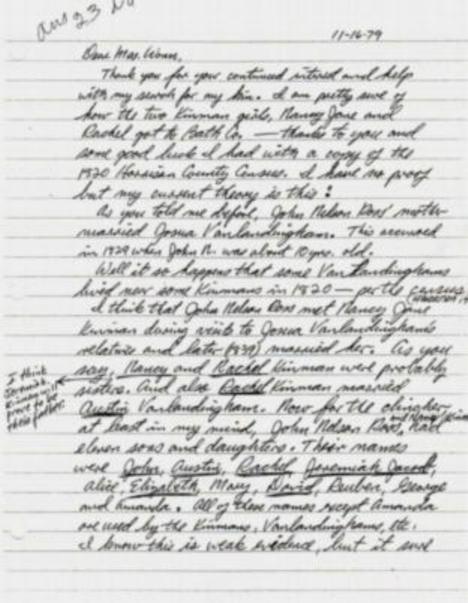 ans 23 No
11-16-79
Dear Mrs. Wann,
Thank you for your continued interest and help
with my search for my kin. I am pretty sure of
how the two Kinman girls, Nancy Jane and
Rachel got to Bath Co. — thanks to you and
some good luck I had with a copy of the
1820 Harrison County Census. I have no proof
but my current theory is this:
As you told me before, John Nelson Ross' mother
married Josua Vanlandingham. This occurred
in 1829 when John N. was about 10 yrs. old.
Well it so happens that some VanLandinghams
lived near some Kinmans in 1820 — per the census
I think that John Nelson Ross met Nancy Jane
Kinman during visits to Josua Vanlandingham's
relatives and later (1839) married her. As you
say, Nancy and Rachel Kinman were probably
sisters. And also Rachel Kinman married
Austin Vanlandingham. Now for the clincher
at least in my mind, John Nelson Ross, had
eleven sons and daughters. Their names
were John, Austin, Rachel, Jeremiah Jacob,
Alice, Elizabeth, Mary, David, Reuben, George
and Amanda. All of these names except Amanda
are used by the Kinmans, Vanlandinghams, etc.
I know this is weak evidence, but it sure
I think
Jeremiah
Kinman will
prove to be
their father.